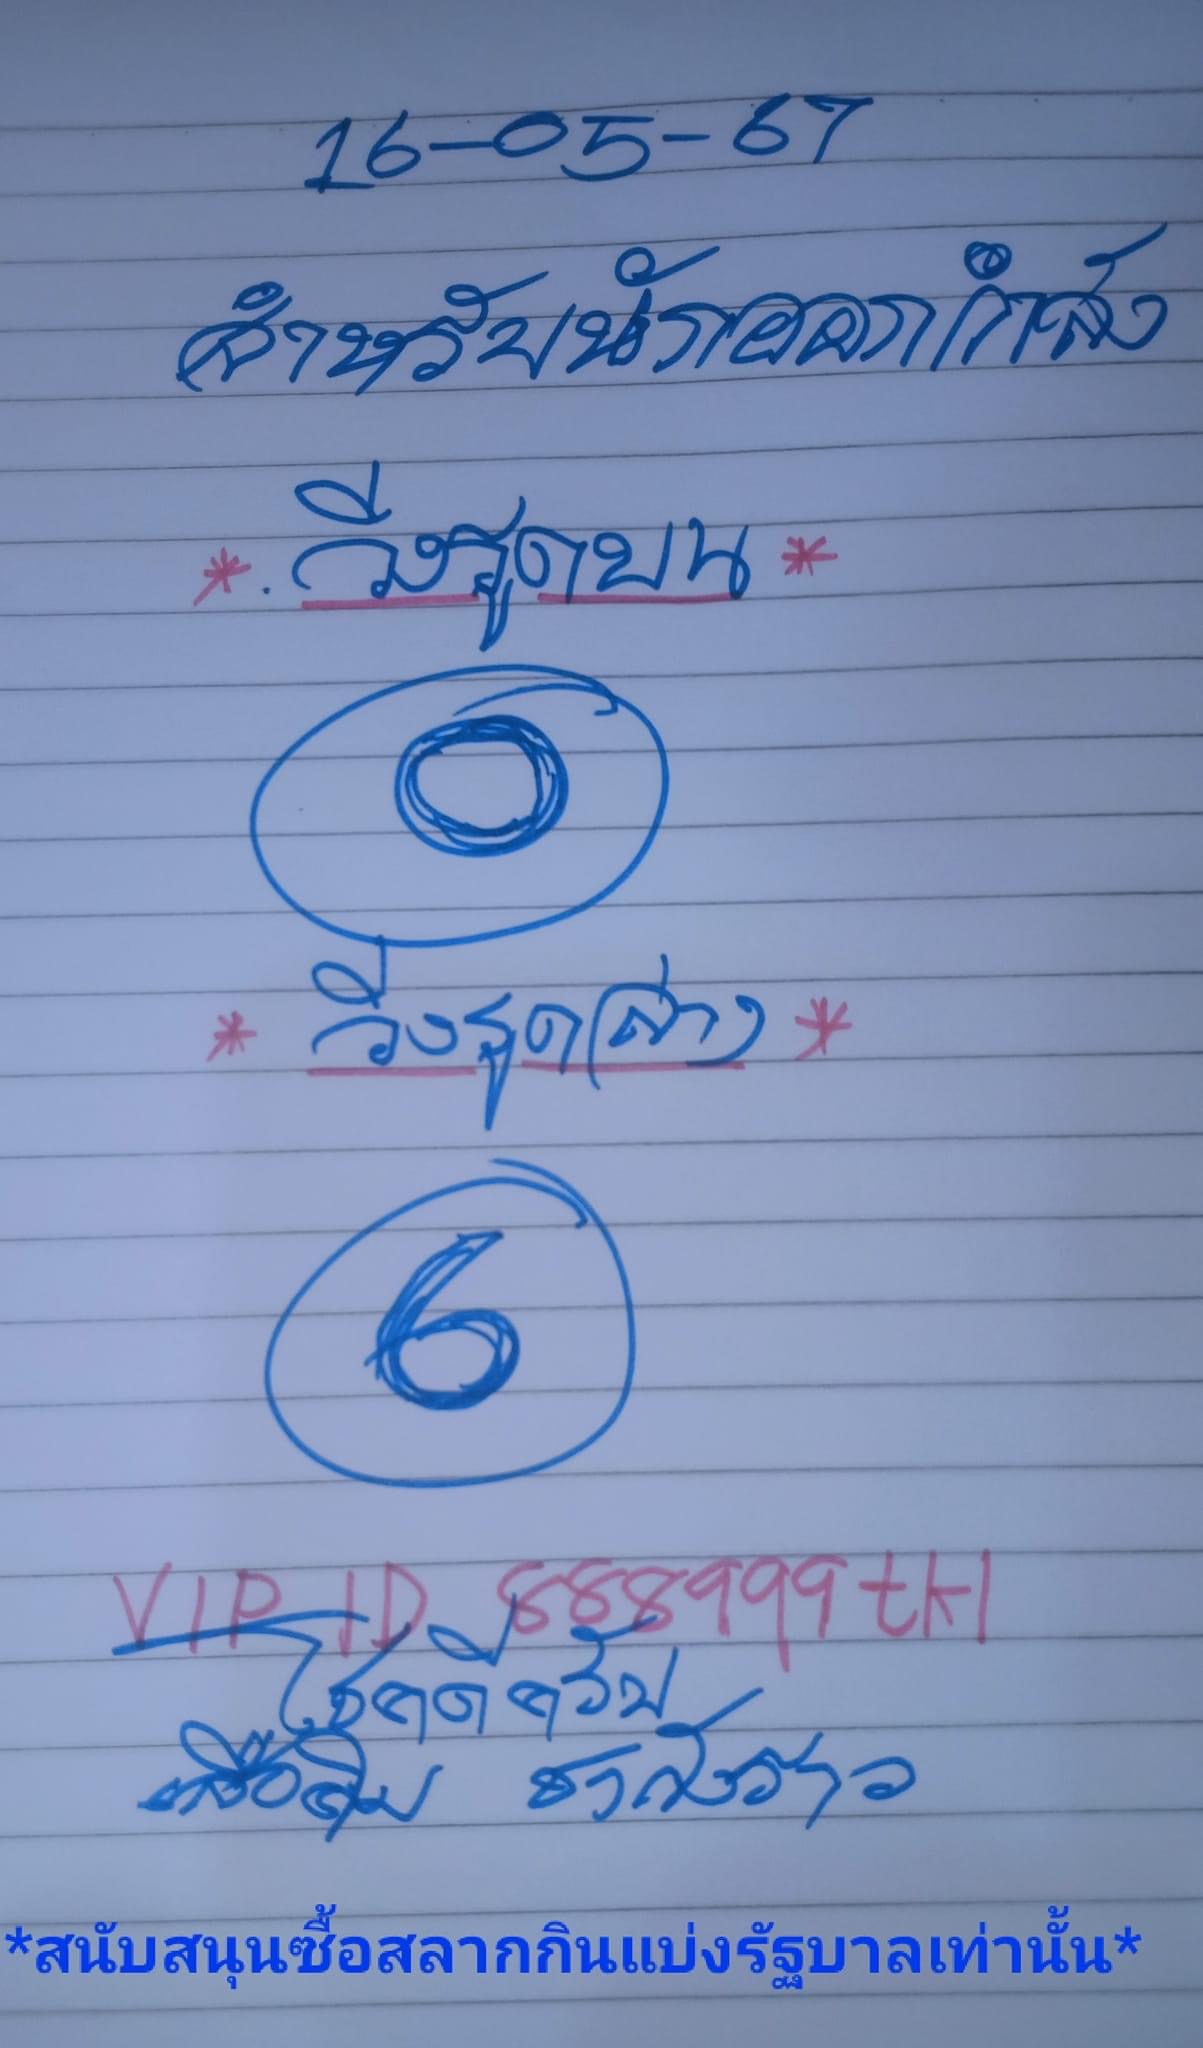 16-05-67
สำหรับนักออกกำลัง
*. วิ่งรูดบน *
0
* วิ่งรูดล่าง *
6
VIP ID 888999tH
โชคดีครับ
เสือดิบ
*สนับสนุนซื้อสลากกินแบ่งรัฐบาลเท่านั้น*